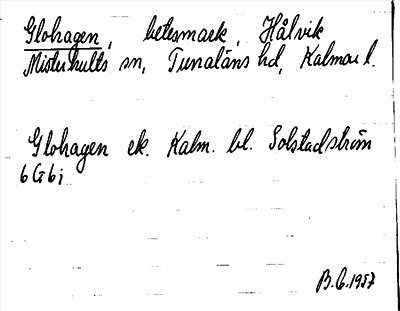 Glohagen, betesmark, Hålvik
Misterhults sn, Tunaläns hd, Kalmar l.
Glohagen ek. Kalm. bl. Solstadström
6G6j
B.G.1957